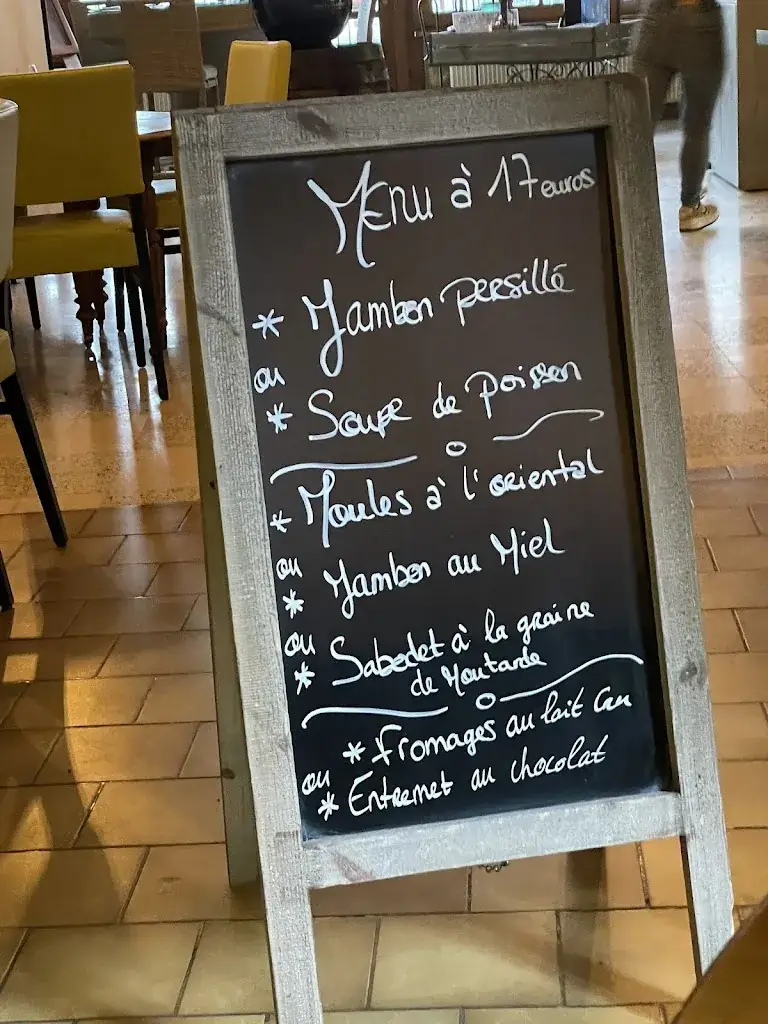 Menu à 17 euros
* Jambon persillé
ou
* Soupe de Poisson
* Moules à l'oriental
ou
* Jambon au Miel
ou
* Sabodet à la graine
de Moutarde
* Fromages au lait Cru
ou
* Entremet au chocolat